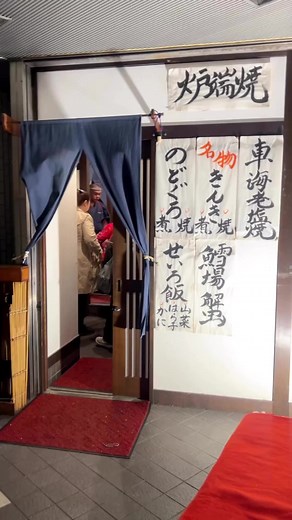 炉端焼
車海老塩焼
名物
きんき
焼
煮
のどぐろ
焼
煮
鱈場蟹
せいろ飯
山菜
はら子
かに